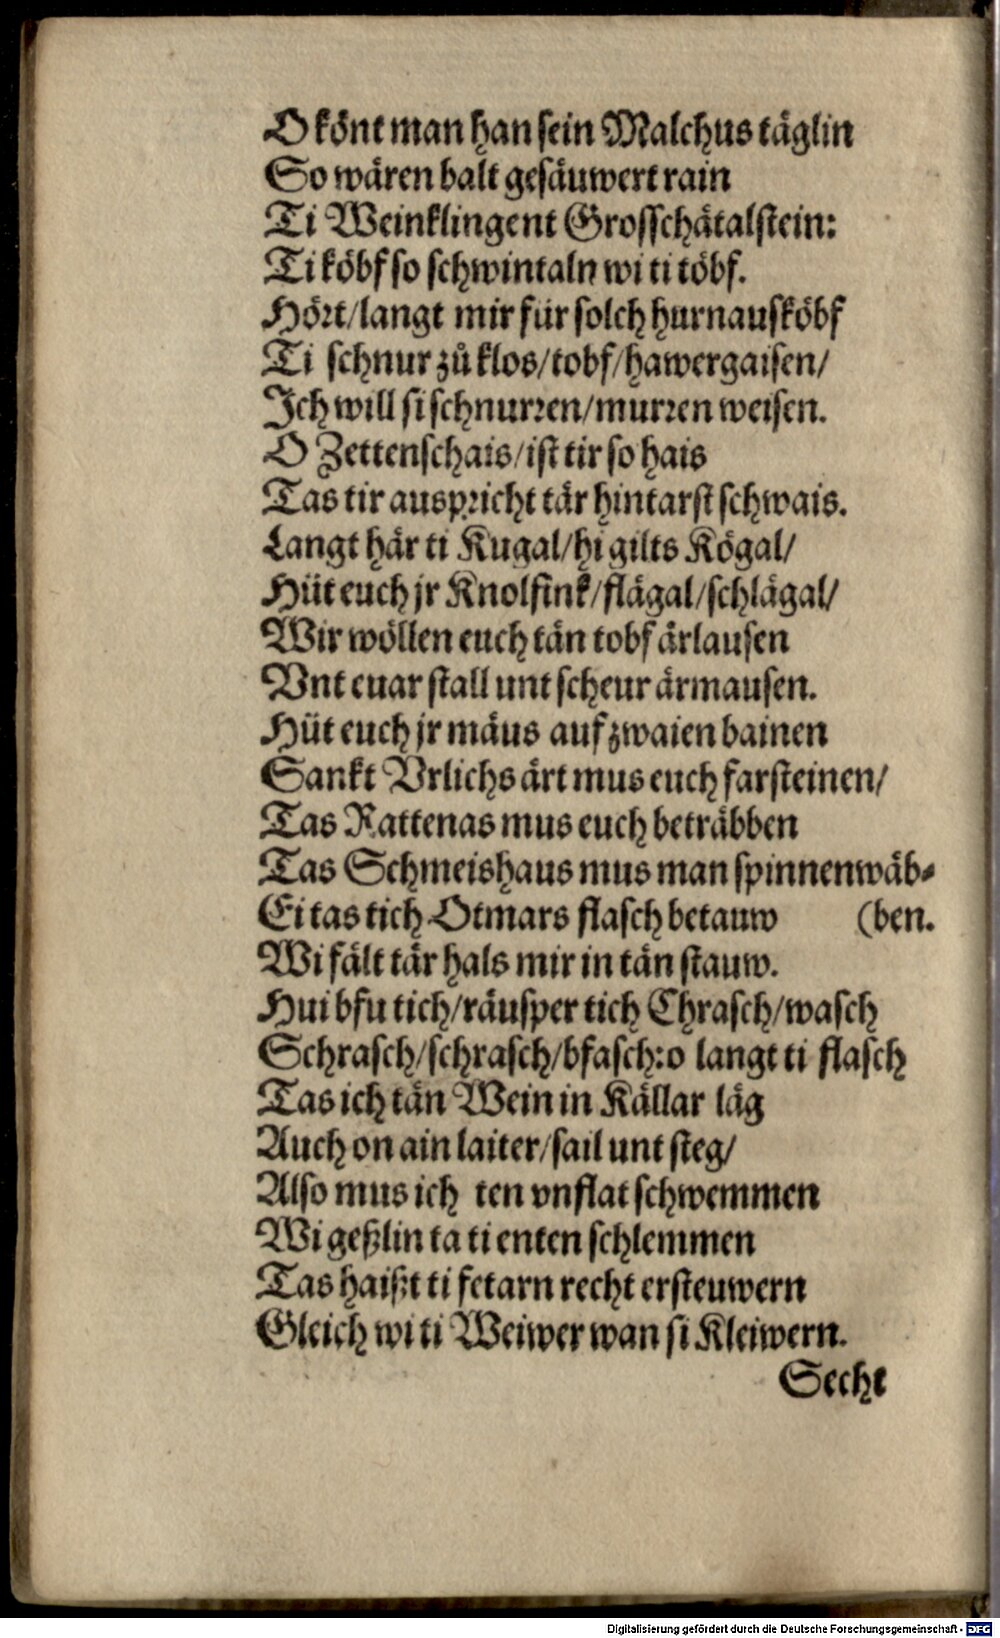 O könt man han sein Malchus täglin
So wären balt gesäuwert rain
Ti Weinklingent Grosschätalstein:
Ti köbf so schwintaln wi ti töbf.
Hört/langt mir für solch hurnausköbf
Ti schnur zů klos/tobf/hawergaisen/
Ich will si schnurren/murren weisen.
O Zettenschais/ist tir so hais
Tas tir auspricht tär hintarst schwais.
Langt här ti Kugal/hi gilts Kögal/
Hüt euch jr Knolfink/flägal/schlägal/
Wir wöllen euch tän tobf ärlausen
Vnt euar stall unt scheur ärmausen.
Hüt euch jr mäus auf zwaien bainen
Sankt Vrlichs ärt mus euch farsteinen/
Tas Rattenas mus euch beträbben
Tas Schmeishaus mus man spinnenwäb-
Ei tas tich Otmars flasch betauw (ben.
Wi fält tär hals mir in tän stauw.
Hui bfu tich/räusper tich Chrasch/wasch
Schrasch/schrasch/bfasch:o langt ti flasch
Tas ich tän Wein in Källar läg
Auch on ain laiter/sail unt steg/
Also mus ich ten vnflat schwemmen
Wi geßlin ta ti enten schlemmen
Tas haißt ti fetarn recht ersteuwern
Gleich wi ti Weiwer wan si Kleiwern.
Secht
Digitalisierung gefördert durch die Deutsche Forschungsgemeinschaft - DFG